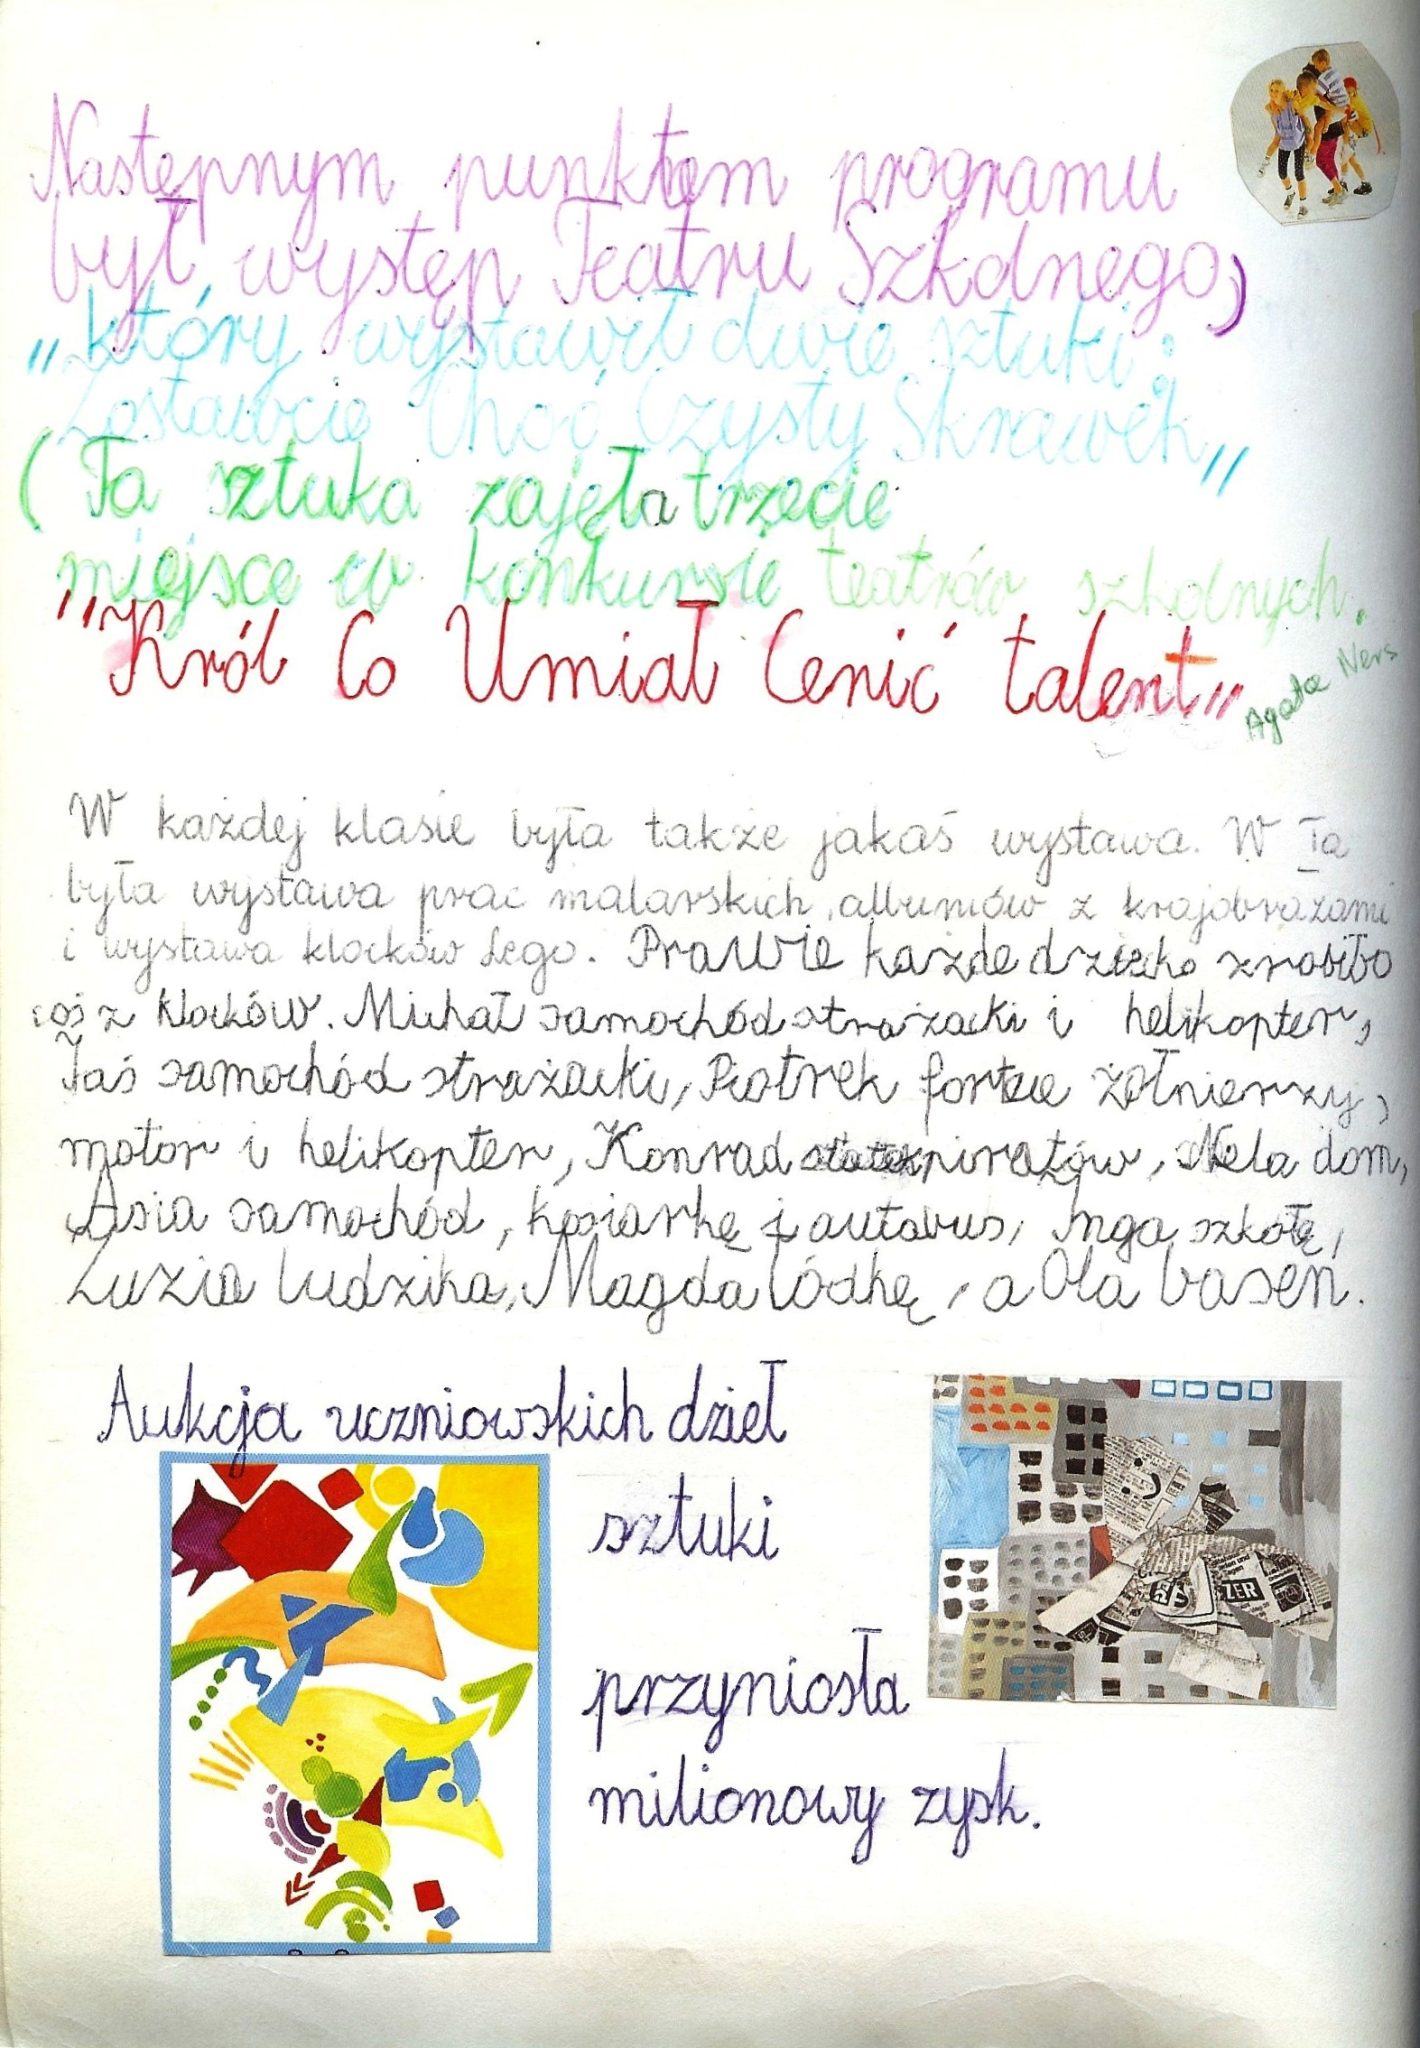 Następnym punktem programu
był występ Teatru Szkolnego,
„który wystawił dwie sztuki:
Zostawcie Choć Czysty Skrawek„
(Ta sztuka zajęła trzecie
miejsce w konkursie teatrów szkolnych.
"Król Co Umiał Cenić talent„
Agata Ners
W każdej klasie była także jakaś wystawa. W Ia
była wystawa prac malarskich, albumów z krajobrazami
i wystawa klocków Lego. Prawie każde dziecko zrobiło
coś z klocków. Michał samochód strażacki i helikopter,
Jaś samochód strażacki, Piotrek fortece żołnierzy,
motor i helikopter, Konrad statek piratów, Nela dom,
Asia samochód, kosiarkę i autobus, Inga szkołę,
Zuzia ludzika, Magda łódkę, a Ola basen.
Aukcja uczniowskich dzieł
sztuki
przyniosła
milionowy zysk.
ZER